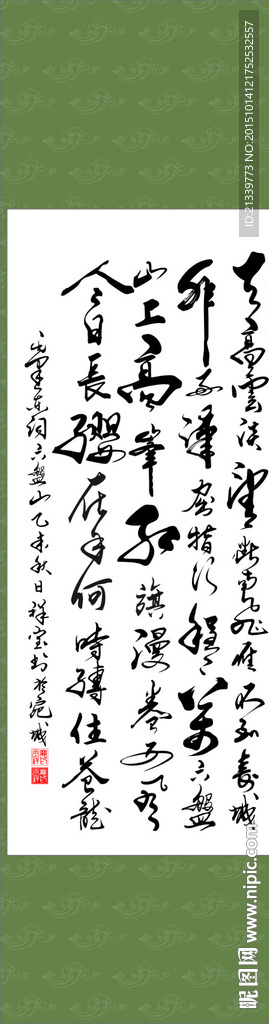 天高雲淡望断南飛雁不到長城
非好漢屈指行程二萬六盤
山上高峰红旗漫卷西风
今日長纓在手何時縛住苍龍
毛澤东词六盤山乙未秋日祥宝书於宛城
ID:21339773 NO:20151014121752532557
昵图网 www.nipic.com